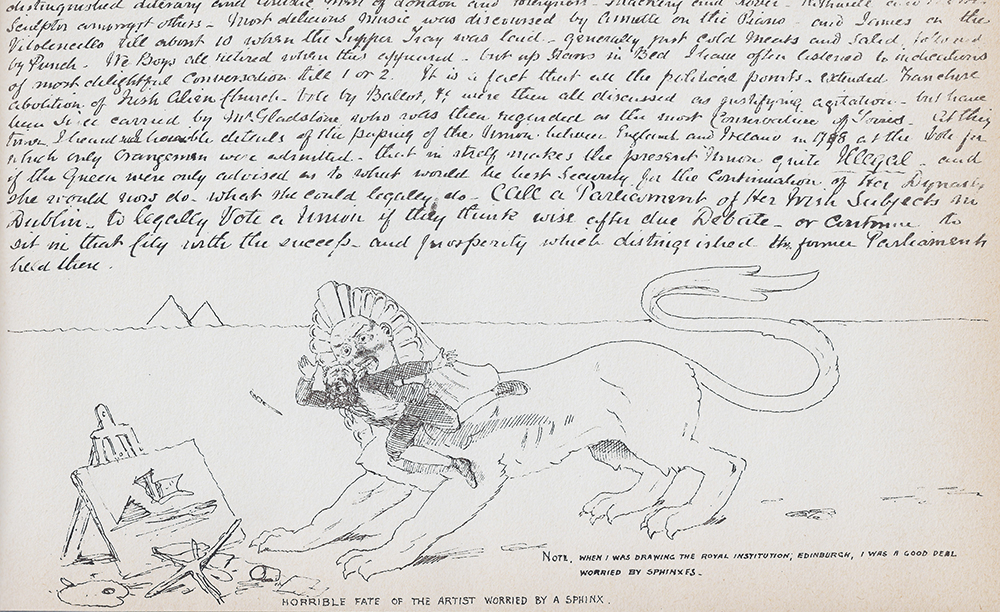 distinguished literary and artistic men of London and foreigners - Thackeray and Lover -
Sculptor amongst others - Most delicious Music was discoursed by on the Piano - and James on the
Violoncello till about 10 when the Supper Tray was laid - generally just Cold Meats and Salad, followed
by Punch. We Boys all retired when this appeared - but up Stairs in Bed I have often listened to indications
of most delightful Conversation till 1 or 2. It is a fact that all the political points - extended Franchise
abolition of Irish Alien Church - Vote by Ballot, &c were then all discussed as justifying agitation - but have
been since carried by Mr Gladstone who was then regarded as the most Conservative of Tories - At they
time I heard details of the of the Union between England and Ireland in at the Vote for
which only Orangemen were admitted - that in itself makes the present Union quite Illegal - and
if the Queen were only advised as to what would be best Security for the Continuation of Her Dynasty
she would now do - what she could legally do - Call a Parliament of Her Irish Subjects in
Dublin - to legally Vote a Union if they think wise after due Debate - or Continue to
sit in that City with the success - and prosperity which distinguished the former Parliaments
held there.
NOTE, WHEN I WAS DRAWING THE ROYAL INSTITUTION, EDINBURGH, I WAS A GOOD DEAL
WORRIED BY SPHINXES -
HORRIBLE FATE OF THE ARTIST WORRIED BY A SPHINX.